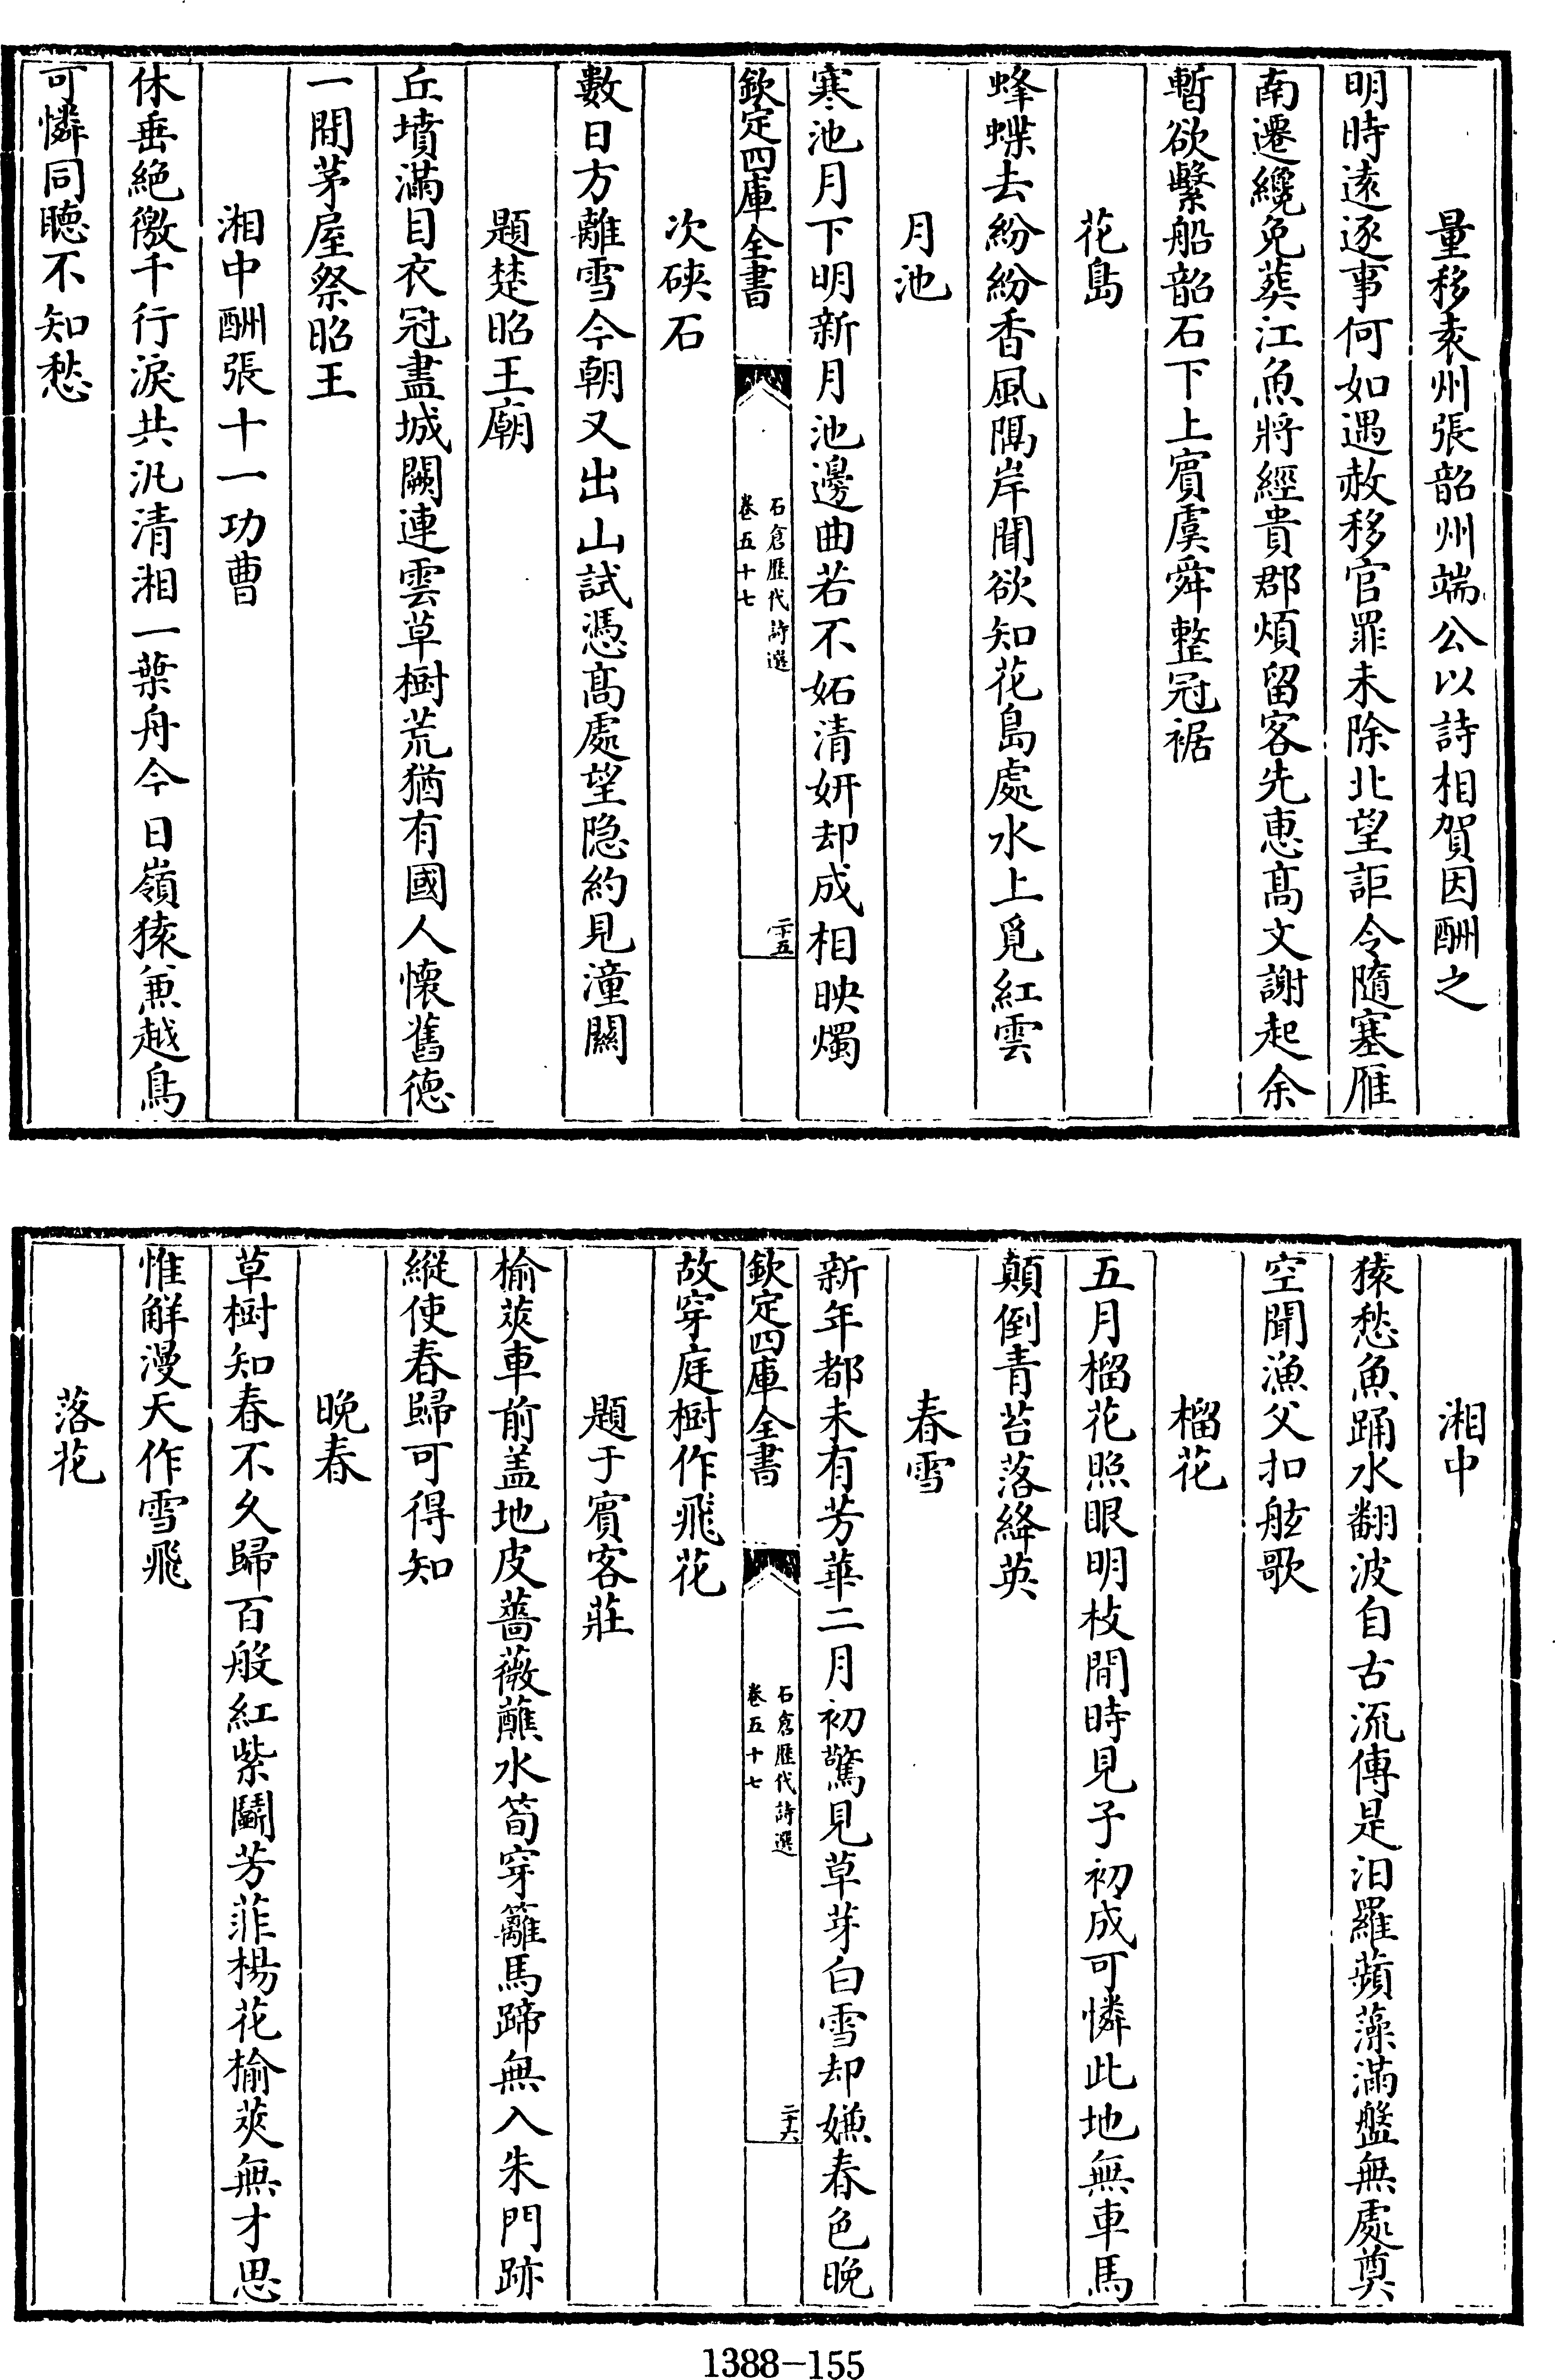 量移袁州張韶州端公以詩相賀因酬之
明時逺逐事何如遇赦移官罪未除北望詎令隨塞雁
南遷纔免葬江魚將經貴郡煩留客先恵髙文謝起余
暫欲繫船韶石下上賓虞舜整冠裾
花島
蜂蝶去紛紛香風隔岸聞欲知花島處水上覓紅雲
月池
寒池月下明新月池邊曲若不妬清妍却成相映燭
欽定四庫全書
石倉歴代詩選
卷五十七
二十五
次硤石
數日方離雪今朝又出山試憑髙處望隐約見潼關
題楚昭王廟
丘墳滿目衣冠盡城闕連雲草樹荒猶有國人懷舊徳
一間茅屋祭昭王
湘中酬張十一功曹
休垂絶徼千行淚共汎清湘一葉舟今日嶺猿兼越鳥
可憐同聽不知愁
湘中
猿愁魚踊水翻波自古流傳是汨羅蘋藻滿盤無處奠
空聞漁父扣舷歌
榴花
五月榴花照眼明枝間時見子初成可憐此地無車馬
顛倒青苔落絳英
春雪
新年都未有芳華二月初驚見草芽白雪却嫌春色晩
欽定四庫全書
石倉歴代詩選
卷五十七
二十六
故穿庭樹作飛花
題于賓客莊
榆莢車前盖地皮薔薇蘸水筍穿籬馬蹄無入朱門跡
縱使春歸可得知
晩春
草樹知春不久歸百般紅紫鬭芳菲楊花榆莢無才思
惟解漫天作雪飛
落花
1388-155